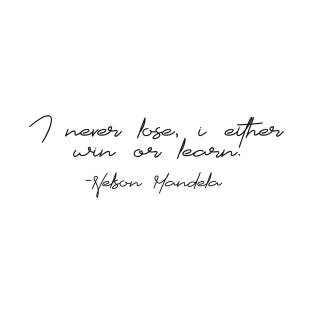 I never lose, i either
win or learn.
-Nelson Mandela